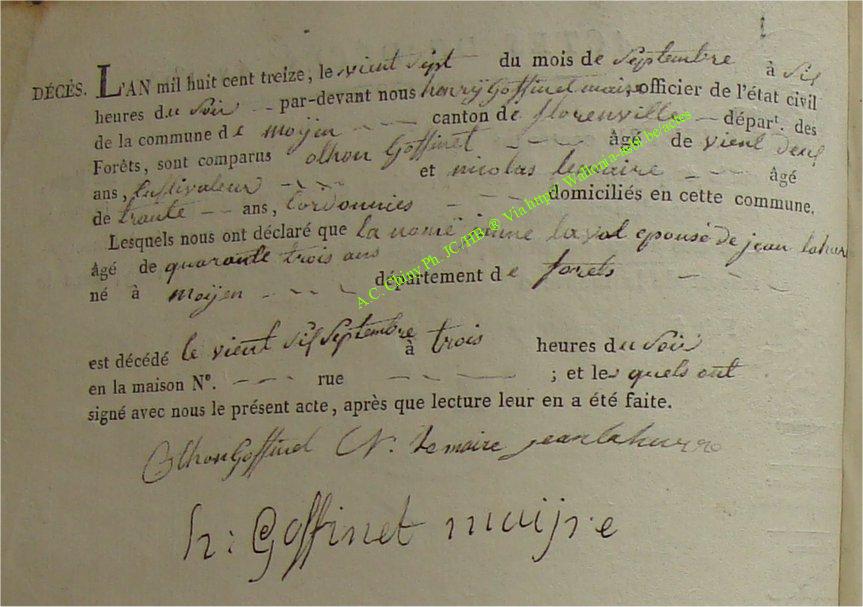 DÉCÈS. L'AN mil huit cent treize, le vient sept du mois de septembre à sis
heures du soir par-devant nous henrÿ Goffinet maire officier de l'état civil
de la commune de moÿen canton de florenville — départ. des
Forêts, sont comparus othon Goffinet âgé de vient deus
ans, Cultivateur et nicolas lemaire âgé
de trante ans, Cordonnies domiciliés en cette commune.
Lesquels nous ont déclaré que la nomé jenne laval epouse de jean lahure
âgé de quarante trois ans
né à moÿen département de forets
est décédé le vient sis septembre à trois heures du soir
en la maison N°. rue ; et les quels ont
signé avec nous le présent acte, après que lecture leur en a été faite.
Othon Goffinet N. Lemaire jean lahurre
h: Goffinet maire
A.C. Chiny Ph. JC/HB ® Via http://Wallonia-